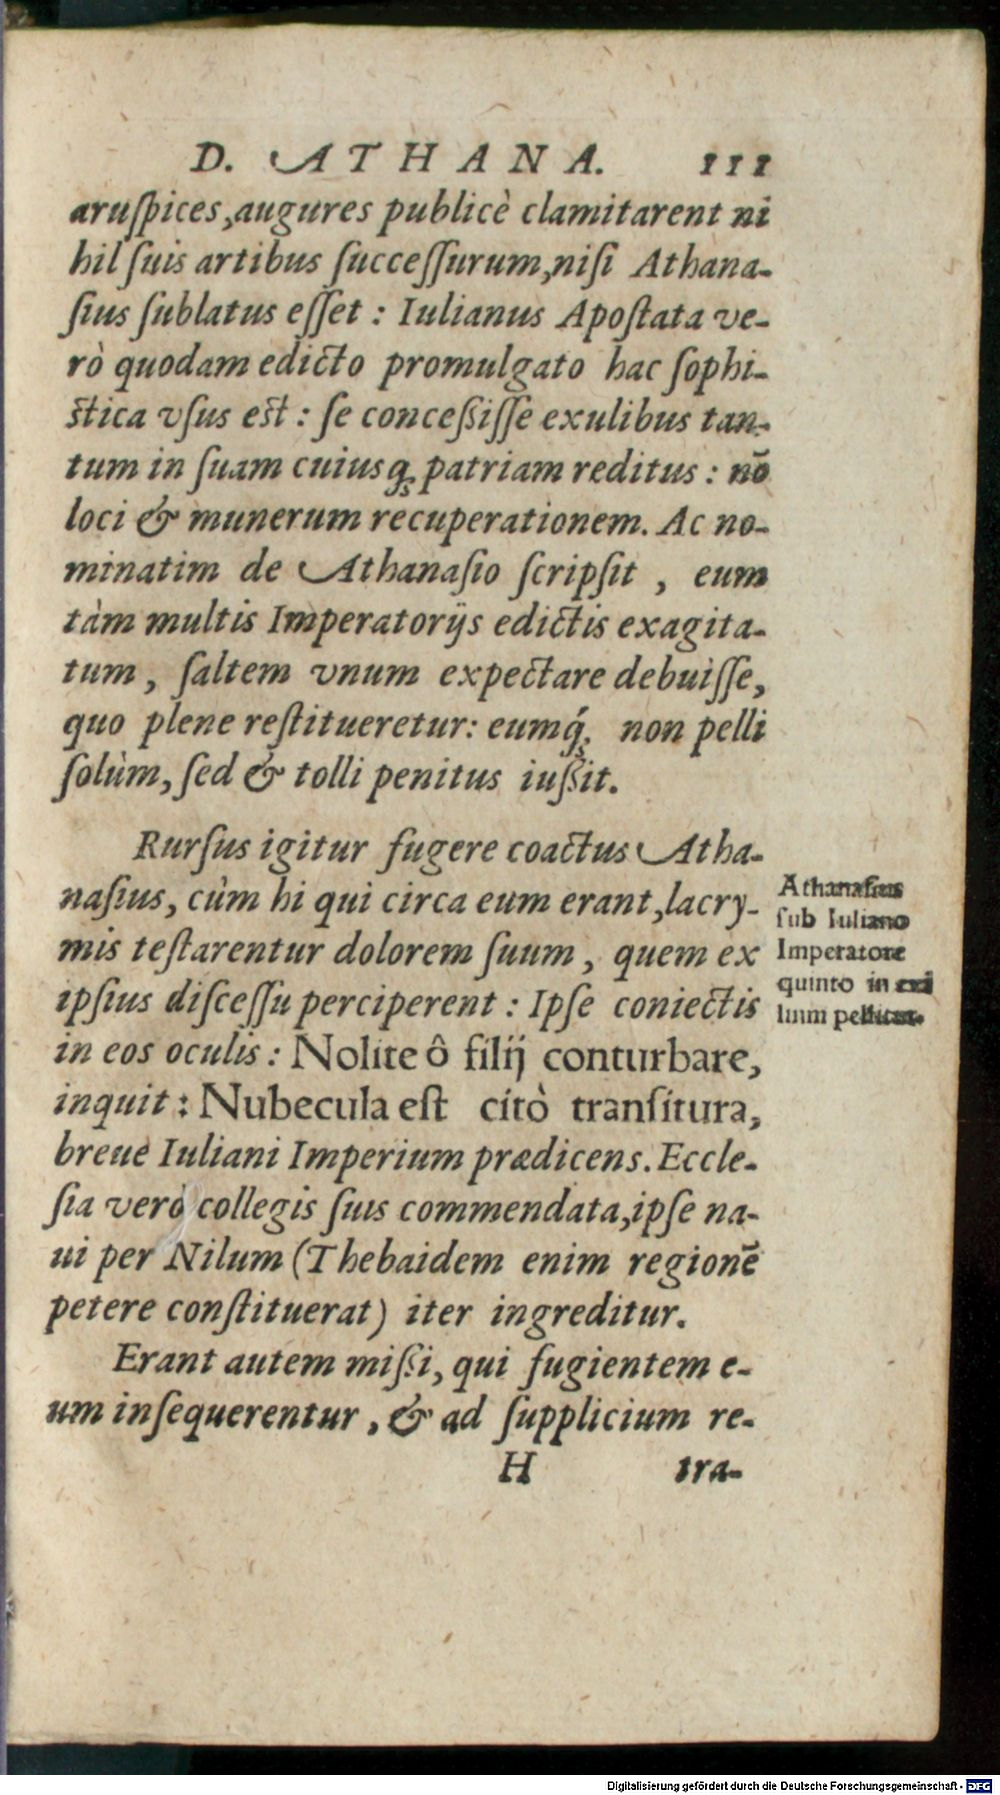 D. ATHANA. 111
aruſpices,augures publicè clamitarent ni
hil ſuis artibus ſucceſſurum,niſi Athana-
ſius ſublatus eſſet : Iulianus Apoſtata ve-
rò quodam edicto promulgato hac ſophi-
ſtica vſus eſt : ſe conceßiſſe exulibus tan-
tum in ſuam cuiusq́; patriam reditus : nō
loci & munerum recuperationem. Ac no-
minatim de Athanaſio ſcripſit , eum
tàm multis Imperatorijs edictis exagita-
tum , ſaltem vnum expectare debuiſſe,
quo plene reſtitueretur: eumq́; non pelli
ſolùm, ſed & tolli penitus iußit.
Rurſus igitur fugere coactus Atha-
naſius, cùm hi qui circa eum erant,lacry-
mis teſtarentur dolorem ſuum , quem ex
ipſius diſceſſu perciperent : Ipſe coniectis
in eos oculis : Nolite ô filij conturbare,
inquit : Nubecula eſt citò tranſitura,
breue Iuliani Imperium prædicens. Eccle-
ſia verò collegis ſuis commendata,ipſe na-
ui per Nilum (Thebaidem enim regionē
petere conſtituerat) iter ingreditur.
Erant autem mißi, qui fugientem e-
um inſequerentur , & ad ſupplicium re-
H tra-
Athanaſius
ſub Iuliano
Imperatore
quinto in exi
lium pellitur.
Digitalisierung gefördert durch die Deutsche Forschungsgemeinschaft - DFG